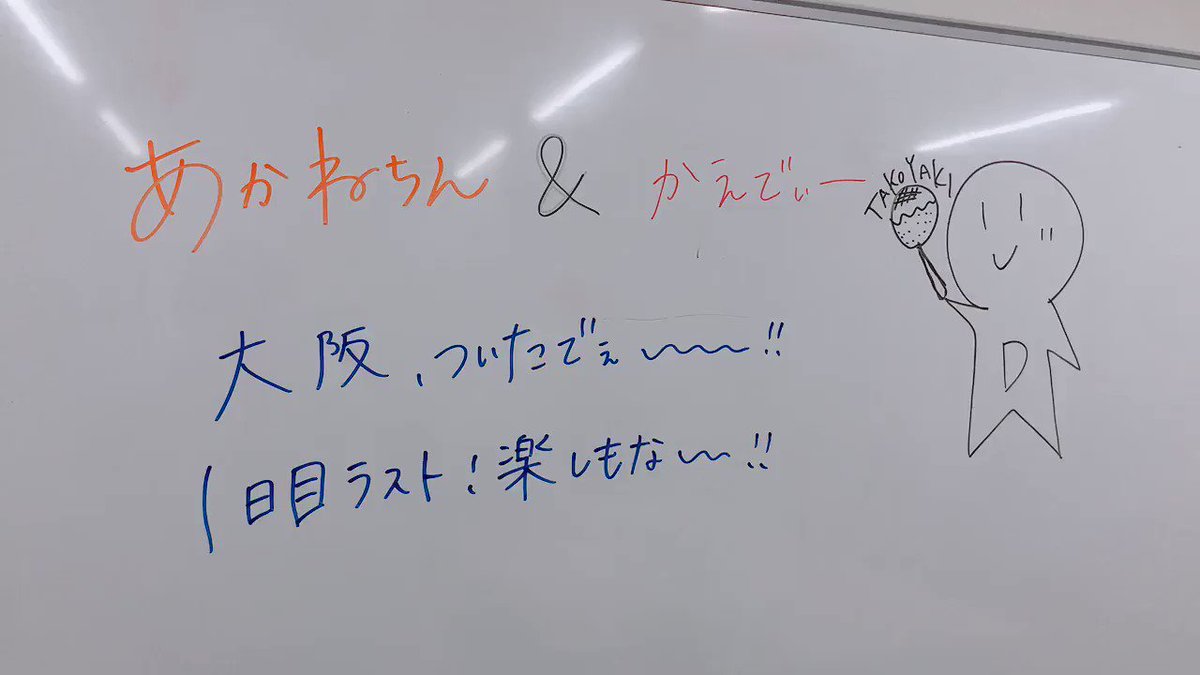 あかねちん & かえでぃー
TAKOYAKI
D
大阪、ついたでぇ〜〜〜!!
1日目ラスト!楽しもな〜〜!!